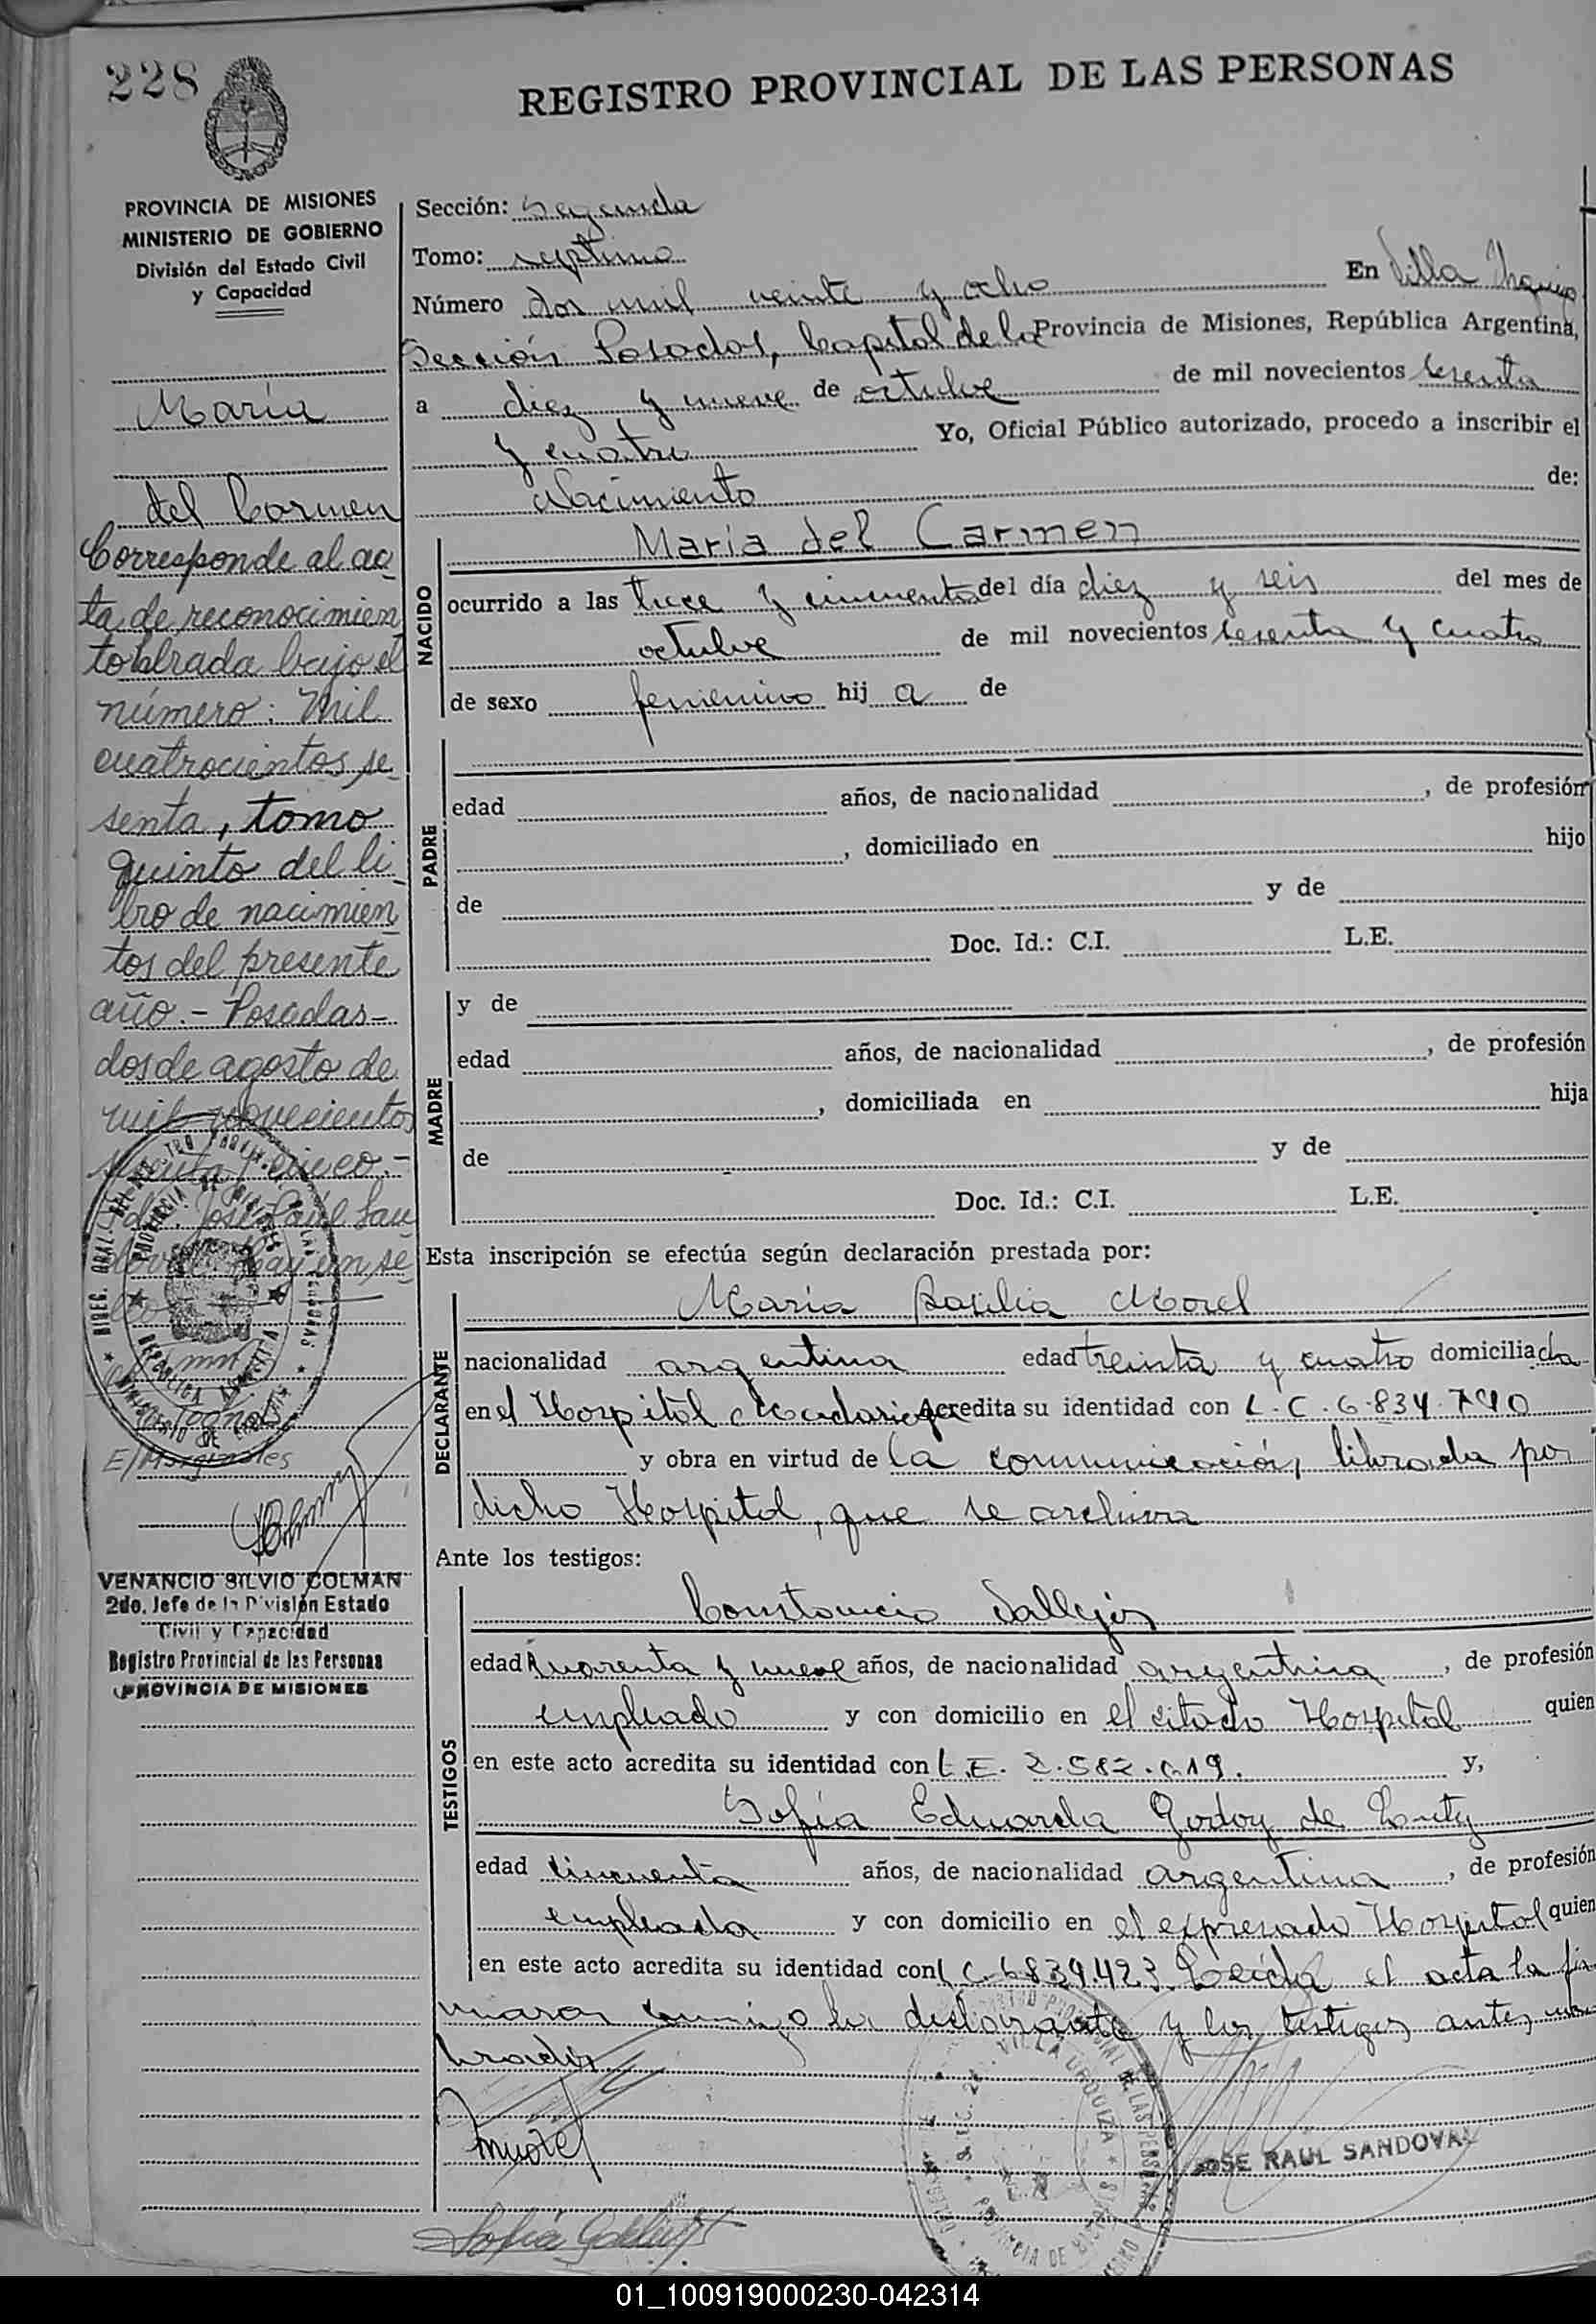 228
REGISTRO PROVINCIAL DE LAS PERSONAS
PROVINCIA DE MISIONES
MINISTERIO DE GOBIERNO
División del Estado Civil
y Capacidad
María
del Carmen
Corresponde al ac
ta de reconocimien
to labrada bajo el
número: Mil
cuatrocientos se
senta, tomo
quinto del li
bro de nacimien
tos del presente
año.- Posadas-
dos de agosto de
mil novecientos
cinco.-
José Raúl San
Hay un se
E/Marginales
VENANCIO SILVIO COLMAN
2do. Jefe de la División Estado
Civil y Capacidad
Registro Provincial de las Personas
PROVINCIA DE MISIONES
Sección: Segunda
Tomo: septimo
Número dos mil veinte y ocho En Villa Urquiza
Sección Posadas, Capital de la Provincia de Misiones, República Argentina,
a diez y nueve de octubre de mil novecientos sesenta
y cuatro Yo, Oficial Público autorizado, procedo a inscribir el
Nacimiento de:
NACIDO
María del Carmen
ocurrido a las trece y cincuenta del día diez y seis del mes de
octubre de mil novecientos sesenta y cuatro
de sexo femenino hij a de
PADRE
edad años, de nacionalidad , de profesión
, domiciliado en hijo
de y de
Doc. Id.: C.I. L.E.
MADRE
y de
edad años, de nacionalidad , de profesión
, domiciliada en hija
de y de
Doc. Id.: C.I. L.E.
Esta inscripción se efectúa según declaración prestada por:
DECLARANTE
María Basilia Morel
nacionalidad argentina edad treinta y cuatro domiciliada
en el Hospital Madariaga acredita su identidad con L.C. 6.834.790
y obra en virtud de la comunicación, librada por
dicho Hospital, que se archiva
Ante los testigos:
TESTIGOS
Constancio Vallejos
edad cuarenta y nueve años, de nacionalidad argentina, de profesión
empleado y con domicilio en el citado Hospital quien
en este acto acredita su identidad con L.E. 2.582.019. y,
Sofía Eduarda Godoy de
edad cincuenta años, de nacionalidad argentina, de profesión
empleada y con domicilio en el expresado Hospital quien
en este acto acredita su identidad con L C. 6839.423. Leida el acta la fir
maron conmigo la declarante y los testigos antes nom
brados
MMorel
JOSE RAUL SANDOVAL
01_100919000230-042314